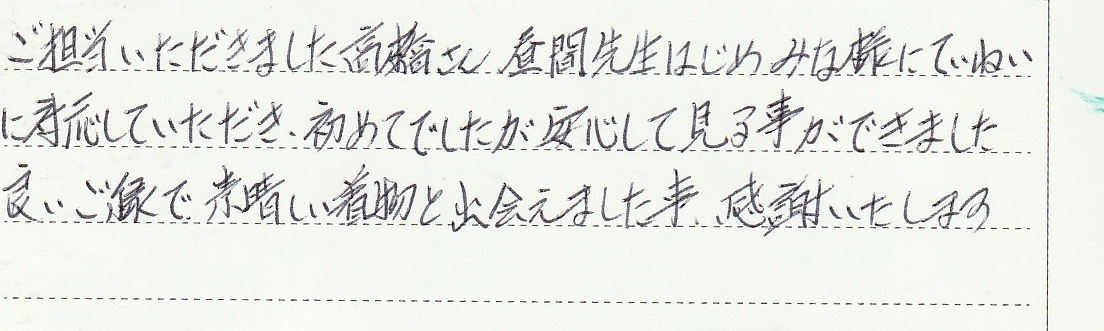 ご担当いただきました高橋さん 昼間先生はじめみな様にていねい
に対応していただき、初めてでしたが安心して見る事ができました
良いご縁で素晴しい着物と出会えました事、感謝いたします